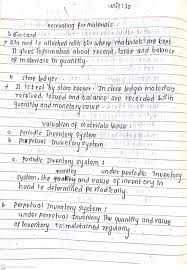 unit: 10
accounting for materials:
Bin card
Bin card is attached with bin where materials are kept
It gives information about receipt, issue and balance
of materials in quantity.
store ledger
It is kept by store keeper. In store ledger materials
received, issued and balance are recorded with
quantity and monetary value.
valuation of materials
a Periodic Inventory system
b Perpetual Inventory system
a. Periodic Inventory system:
under periodic inventory
system, the quantity and value of inventory in
hand is determined periodically.
b Perpetual Inventory system:
under perpetual inventory the quantity and value
of inventory is maintained regularly